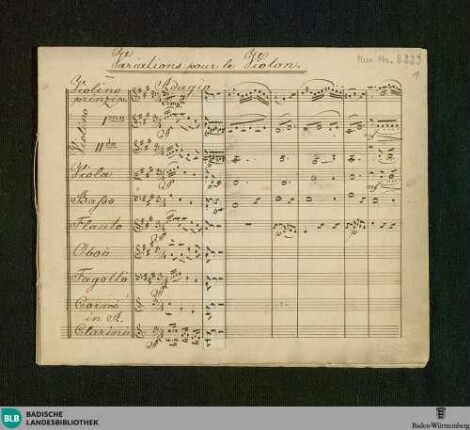 Variations pour le Violon.
Mus. Hs. 2229
1
Adagio
Violino
prinzip.
Violino Imo
IIdo
Viola
Basso
Flauto
Oboe
Fagotto
Corni
in A.
Clarini
BLB
BADISCHE
LANDESBIBLIOTHEK
Baden-Württemberg